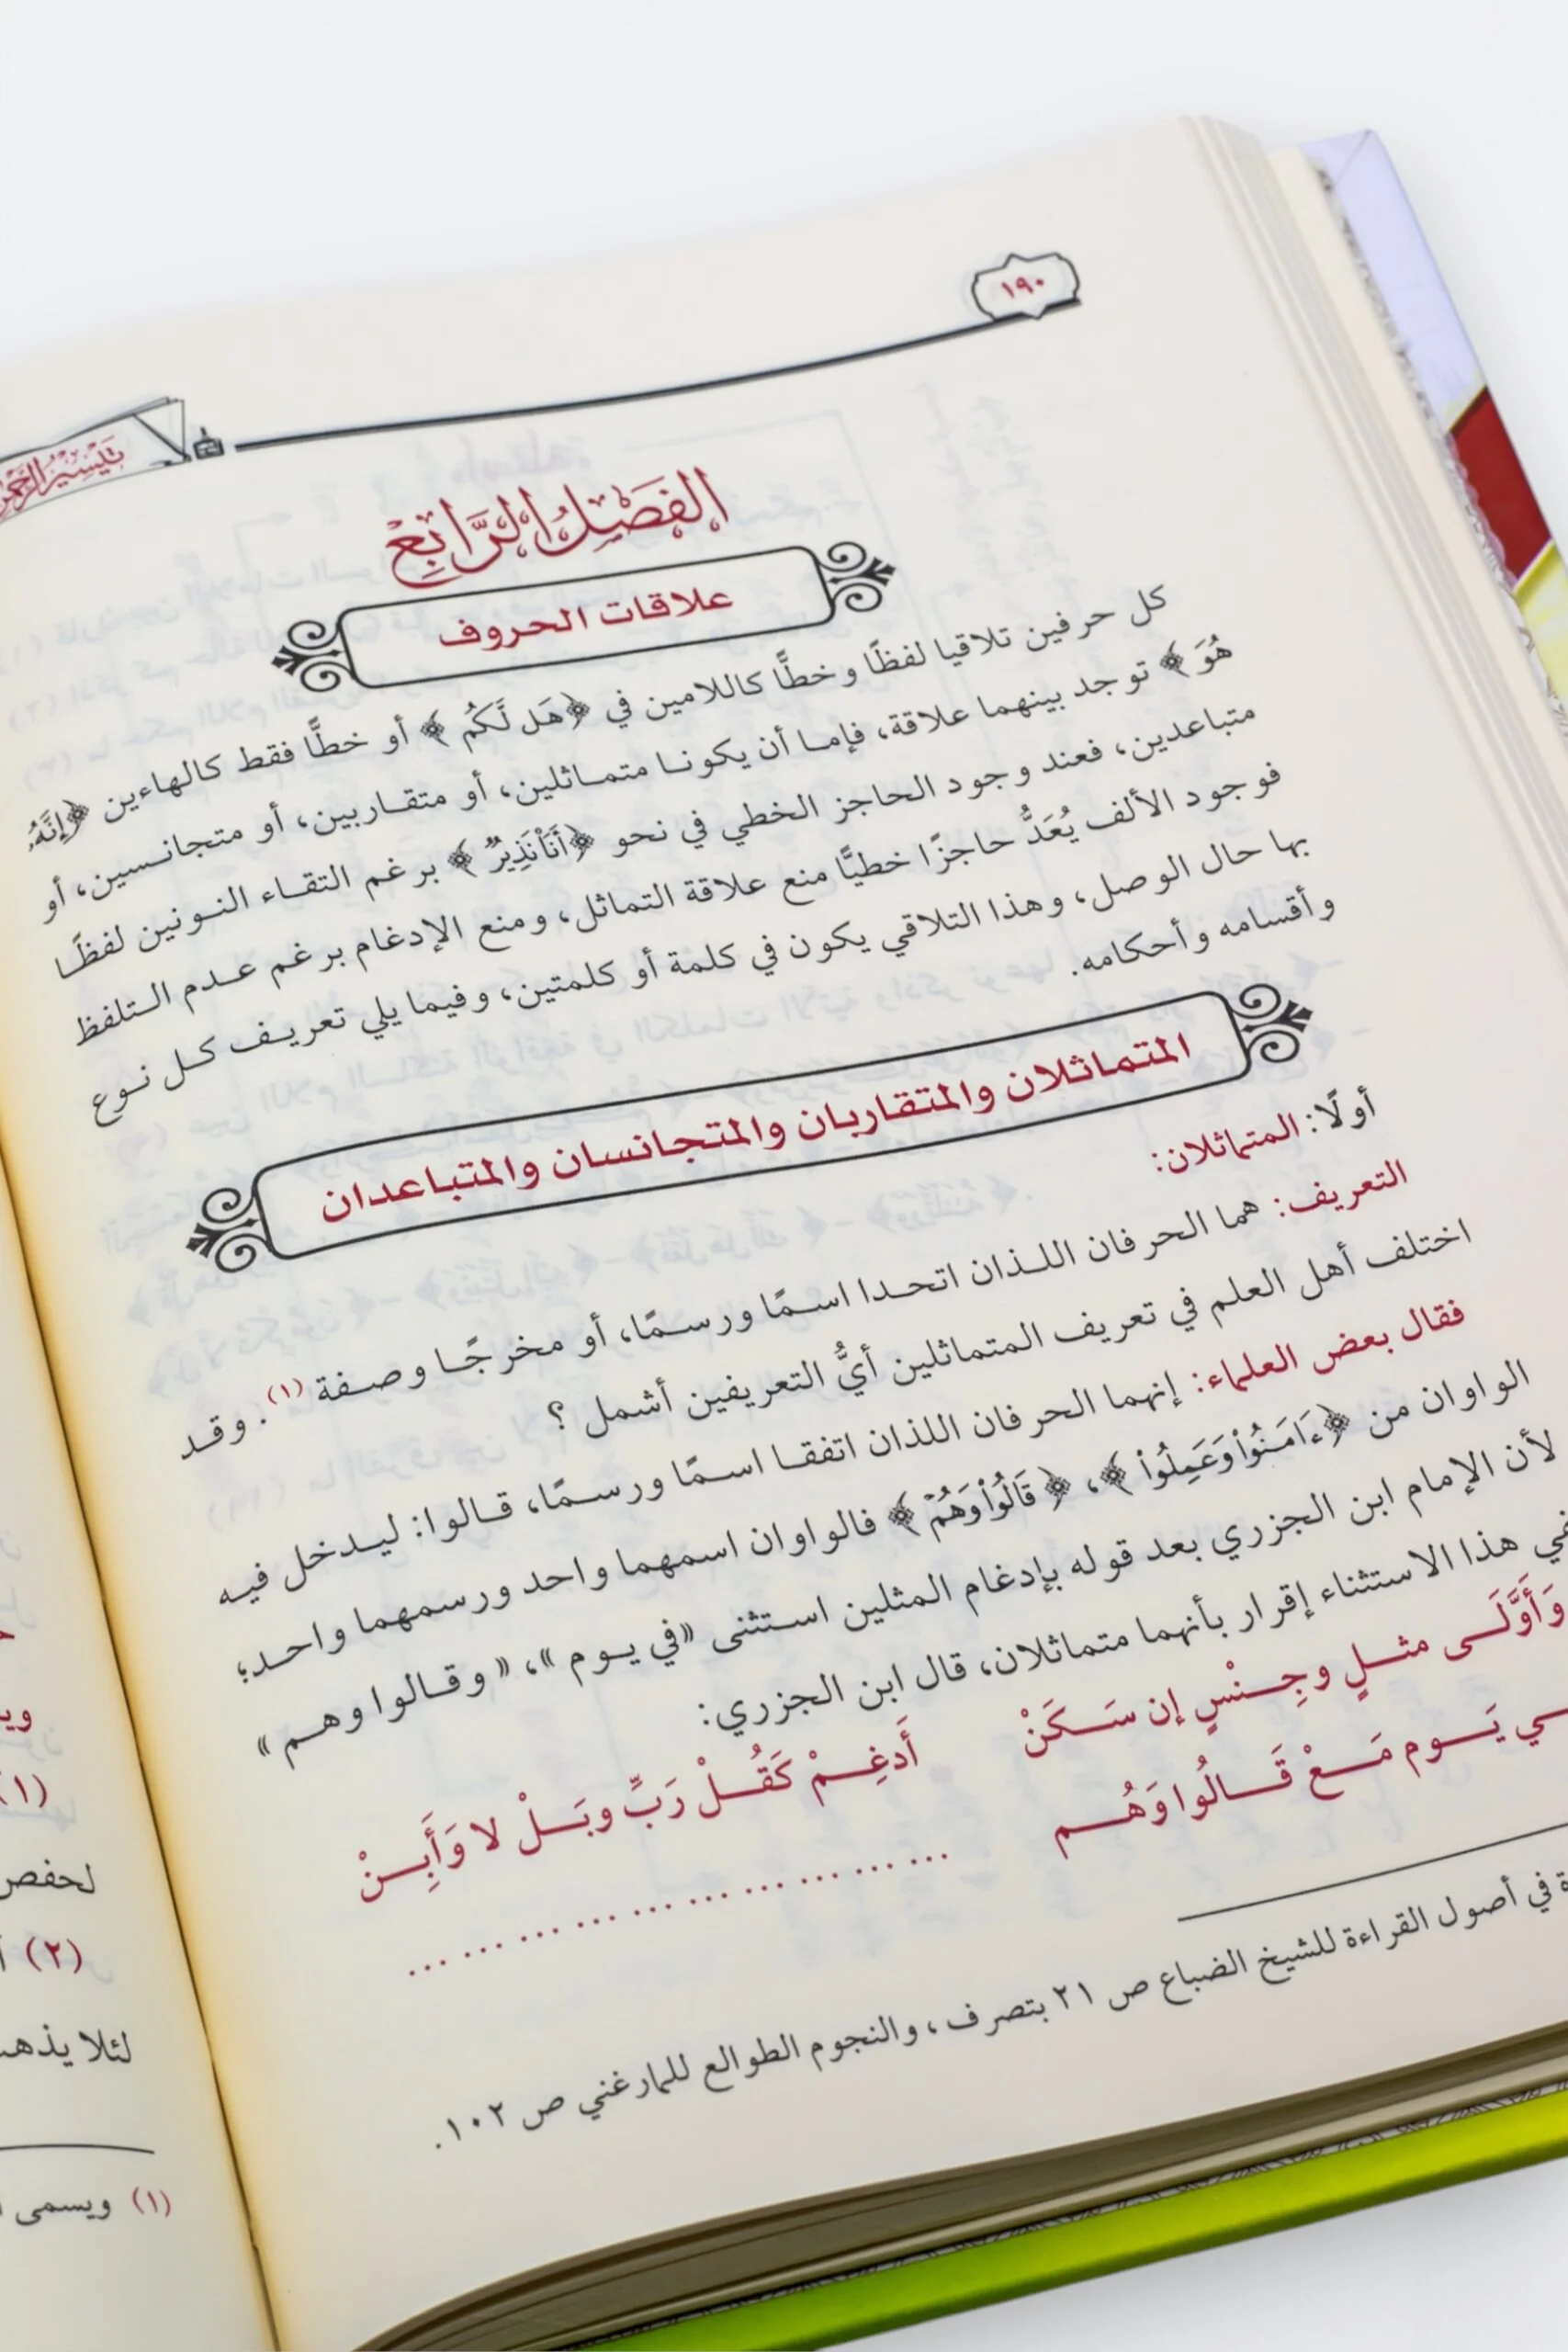 ١٩٠
تيسير الرحمن
الفَصْلُ الرَّابِعْ
علاقات الحروف
كل حرفين تلاقيا لفظًا وخطًّا كاللامين في ﴿هَل لَّكُم﴾ أو خطًّا فقط كالهاءين ﴿إِنَّهُۥ
هُوَ﴾ توجد بينهما علاقة، فإما أن يكونا متماثلين، أو متقاربين، أو متجانسين، أو
متباعدين، فعند وجود الحاجز الخطي في نحو ﴿أَنَا۠ نَذِيرٌ﴾ برغم التقاء النونين لفظًا
فوجود الألف يُعَدُّ حاجزًا خطيًّا منع علاقة التماثل، ومنع الإدغام برغم عدم التلفظ
بها حال الوصل، وهذا التلاقي يكون في كلمة أو كلمتين، وفيما يلي تعريف كل نوع
وأقسامه وأحكامه.
المتماثلان والمتقاربان والمتجانسان والمتباعدان
أولًا: المتماثلان:
التعريف: هما الحرفان اللذان اتحدا اسمًا ورسمًا، أو مخرجًا وصفة (١). وقد
اختلف أهل العلم في تعريف المتماثلين أيُّ التعريفين أشمل ؟
فقال بعض العلماء: إنهما الحرفان اللذان اتفقا اسمًا ورسمًا، قالوا: ليدخل فيه
الواوان من ﴿ءَامَنُوا۟ وَعَمِلُوا۟﴾، ﴿قَالُوا۟ وَهُمْ﴾ فالواوان اسمهما واحد ورسمهما واحد؛
لأن الإمام ابن الجزري بعد قوله بإدغام المثلين استثنى «في يوم»، «وقالوا وهم»
في هذا الاستثناء إقرار بأنهما متماثلان، قال ابن الجزري:
وَأَوَّلَى مثلٍ وجِنْسٍ إن سَكَنْ أَدغِمْ كَقُلْ رَبِّ وبَلْ لا وَأَبِنْ
يَوم مَعْ قَالُوا وَهُم ... ... ... ... ... ... ... ... ... ...
في أصول القراءة للشيخ الضباع ص ٢١ بتصرف، والنجوم الطوالع للمارغني ص ١٠٢.
(١)
لحفص
(٢)
لئلا
(١) ويسمى